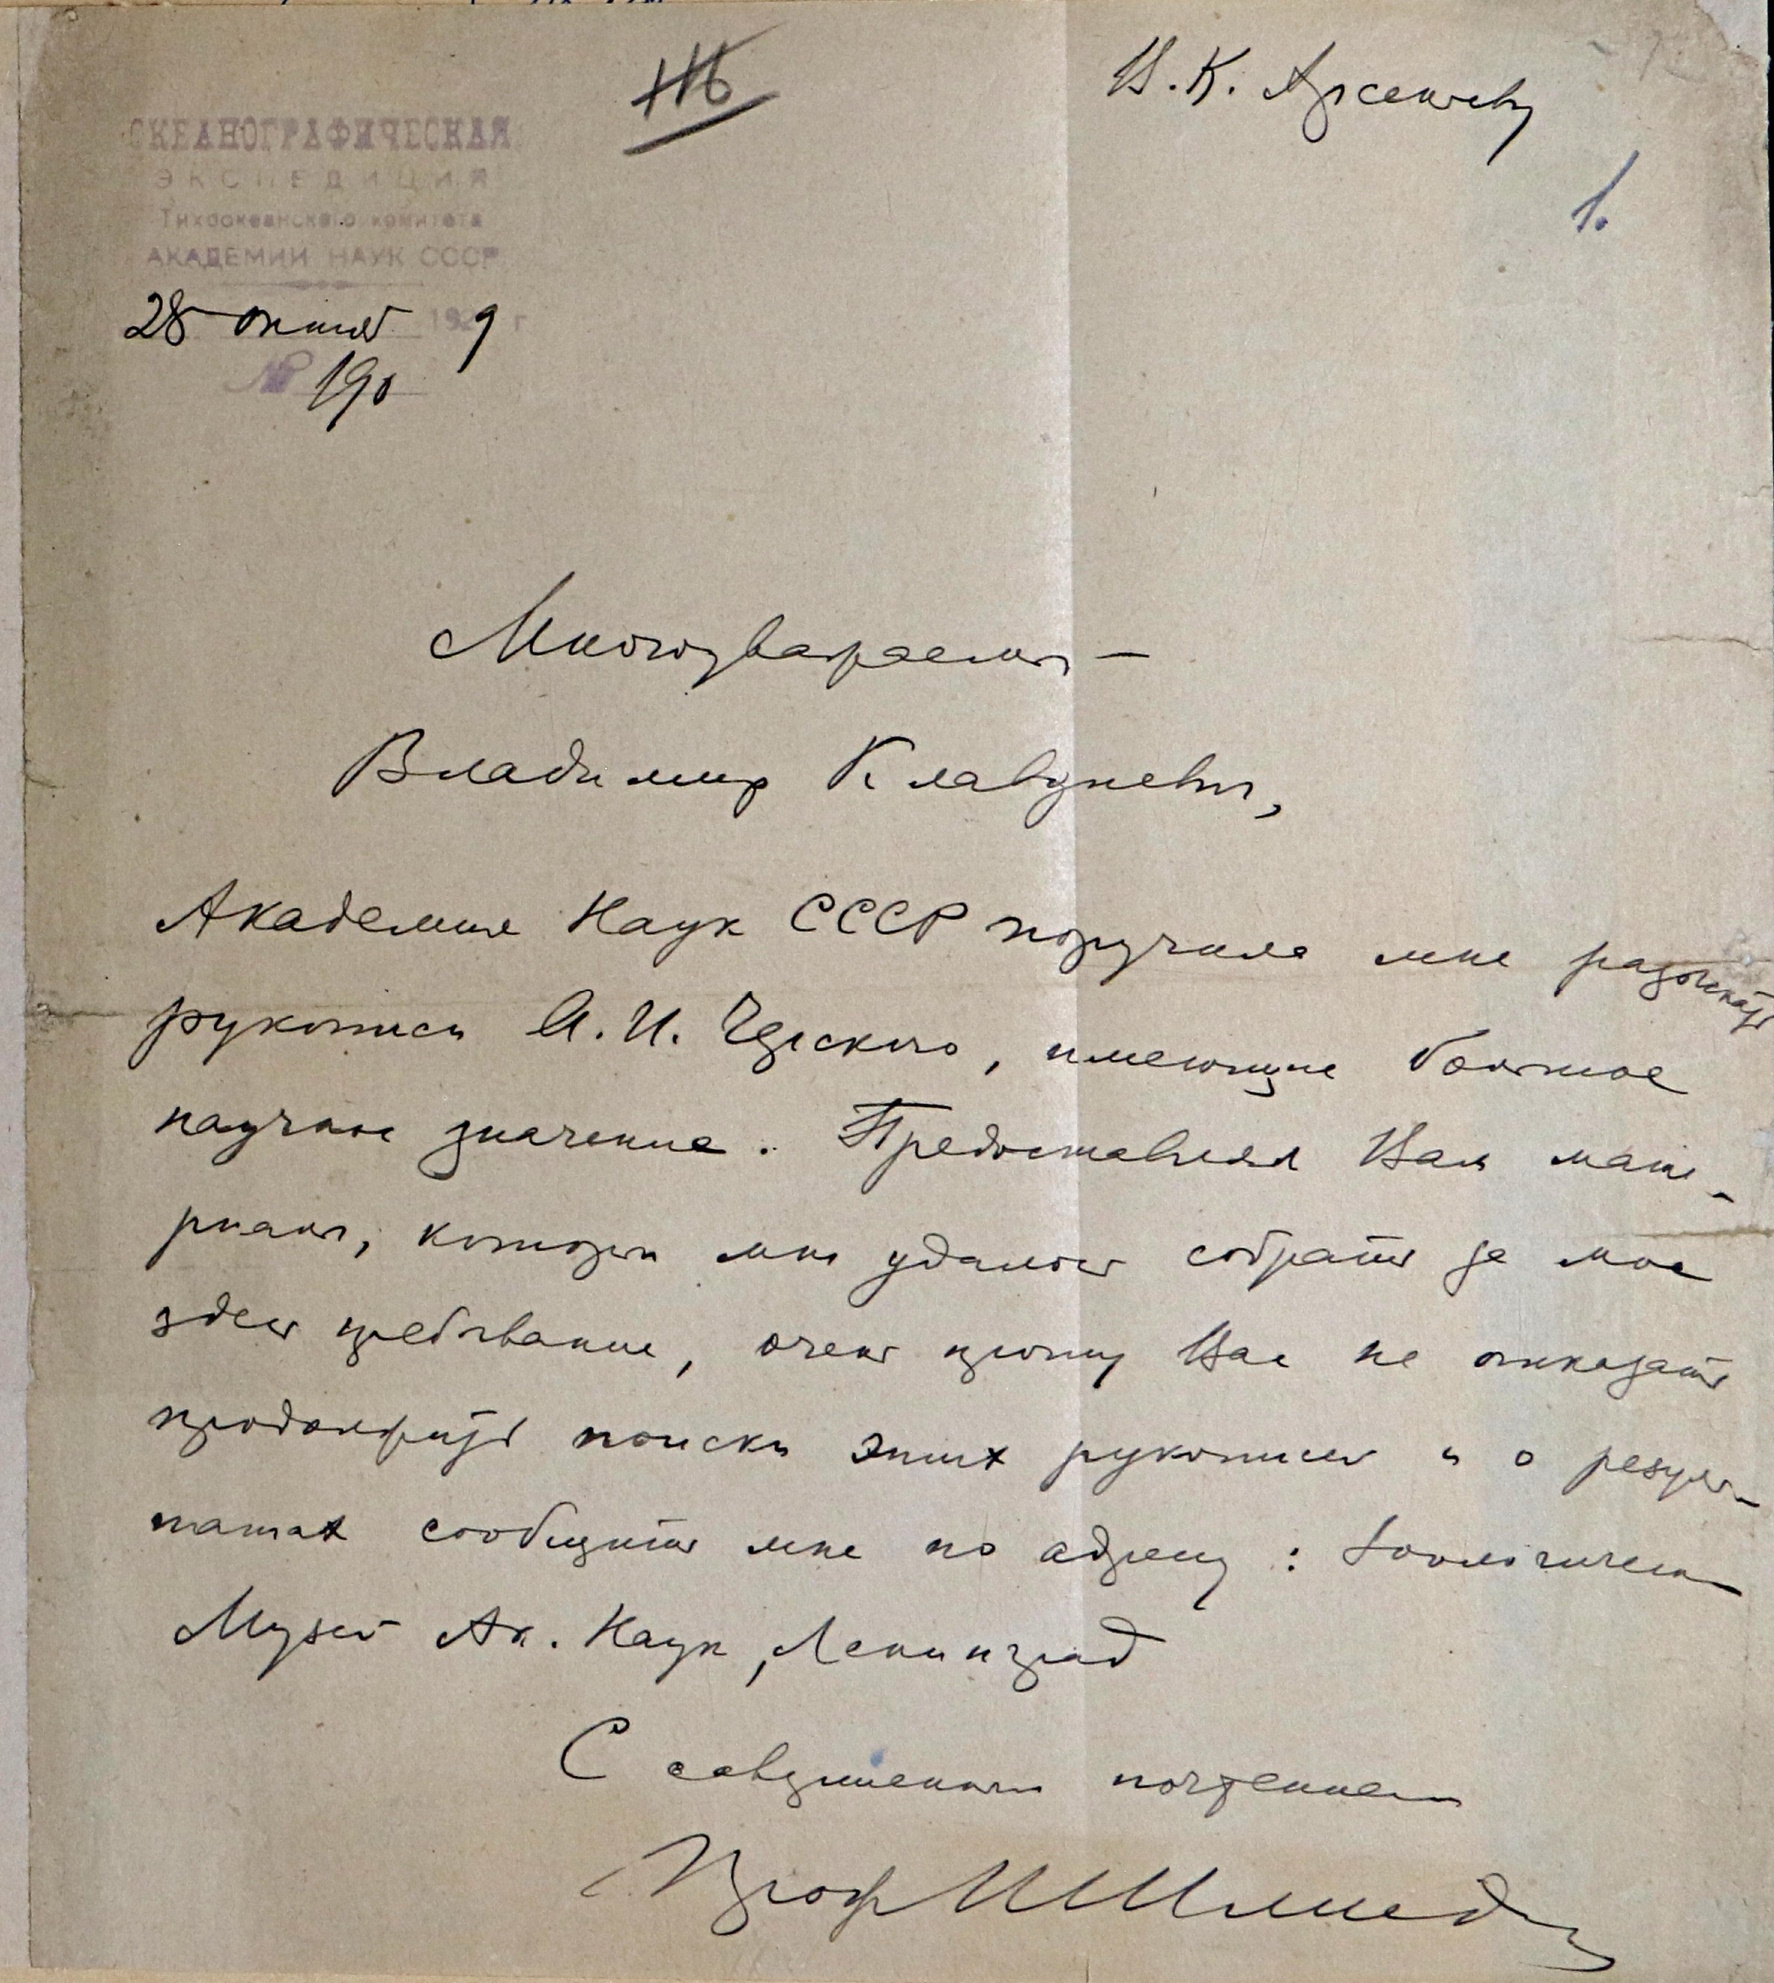 В. К. Арсеньеву
1.
ОКЕАНОГРАФИЧЕСКАЯ
ЭКСПЕДИЦИЯ
Тихоокеанского комитета
АКАДЕМИИ НАУК СССР
28 октяб 1929 г
№ 190
Многоуважаемый
Владимир Клавдиевич,
Академия Наук СССР поручила мне разыскать
рукописи А. И. Черского, имеющие большое
научное значение. Предоставляя Вам мате-
риалы, которые мне удалось собрать за мое
здесь пребывание, очень прошу Вас не отказать
продолжить поиски этих рукописей и о резуль-
татах сообщить мне по адресу: Зоологический
Музей Ак. Наук, Ленинград
С совершенным почтением
Проф П Шмидт